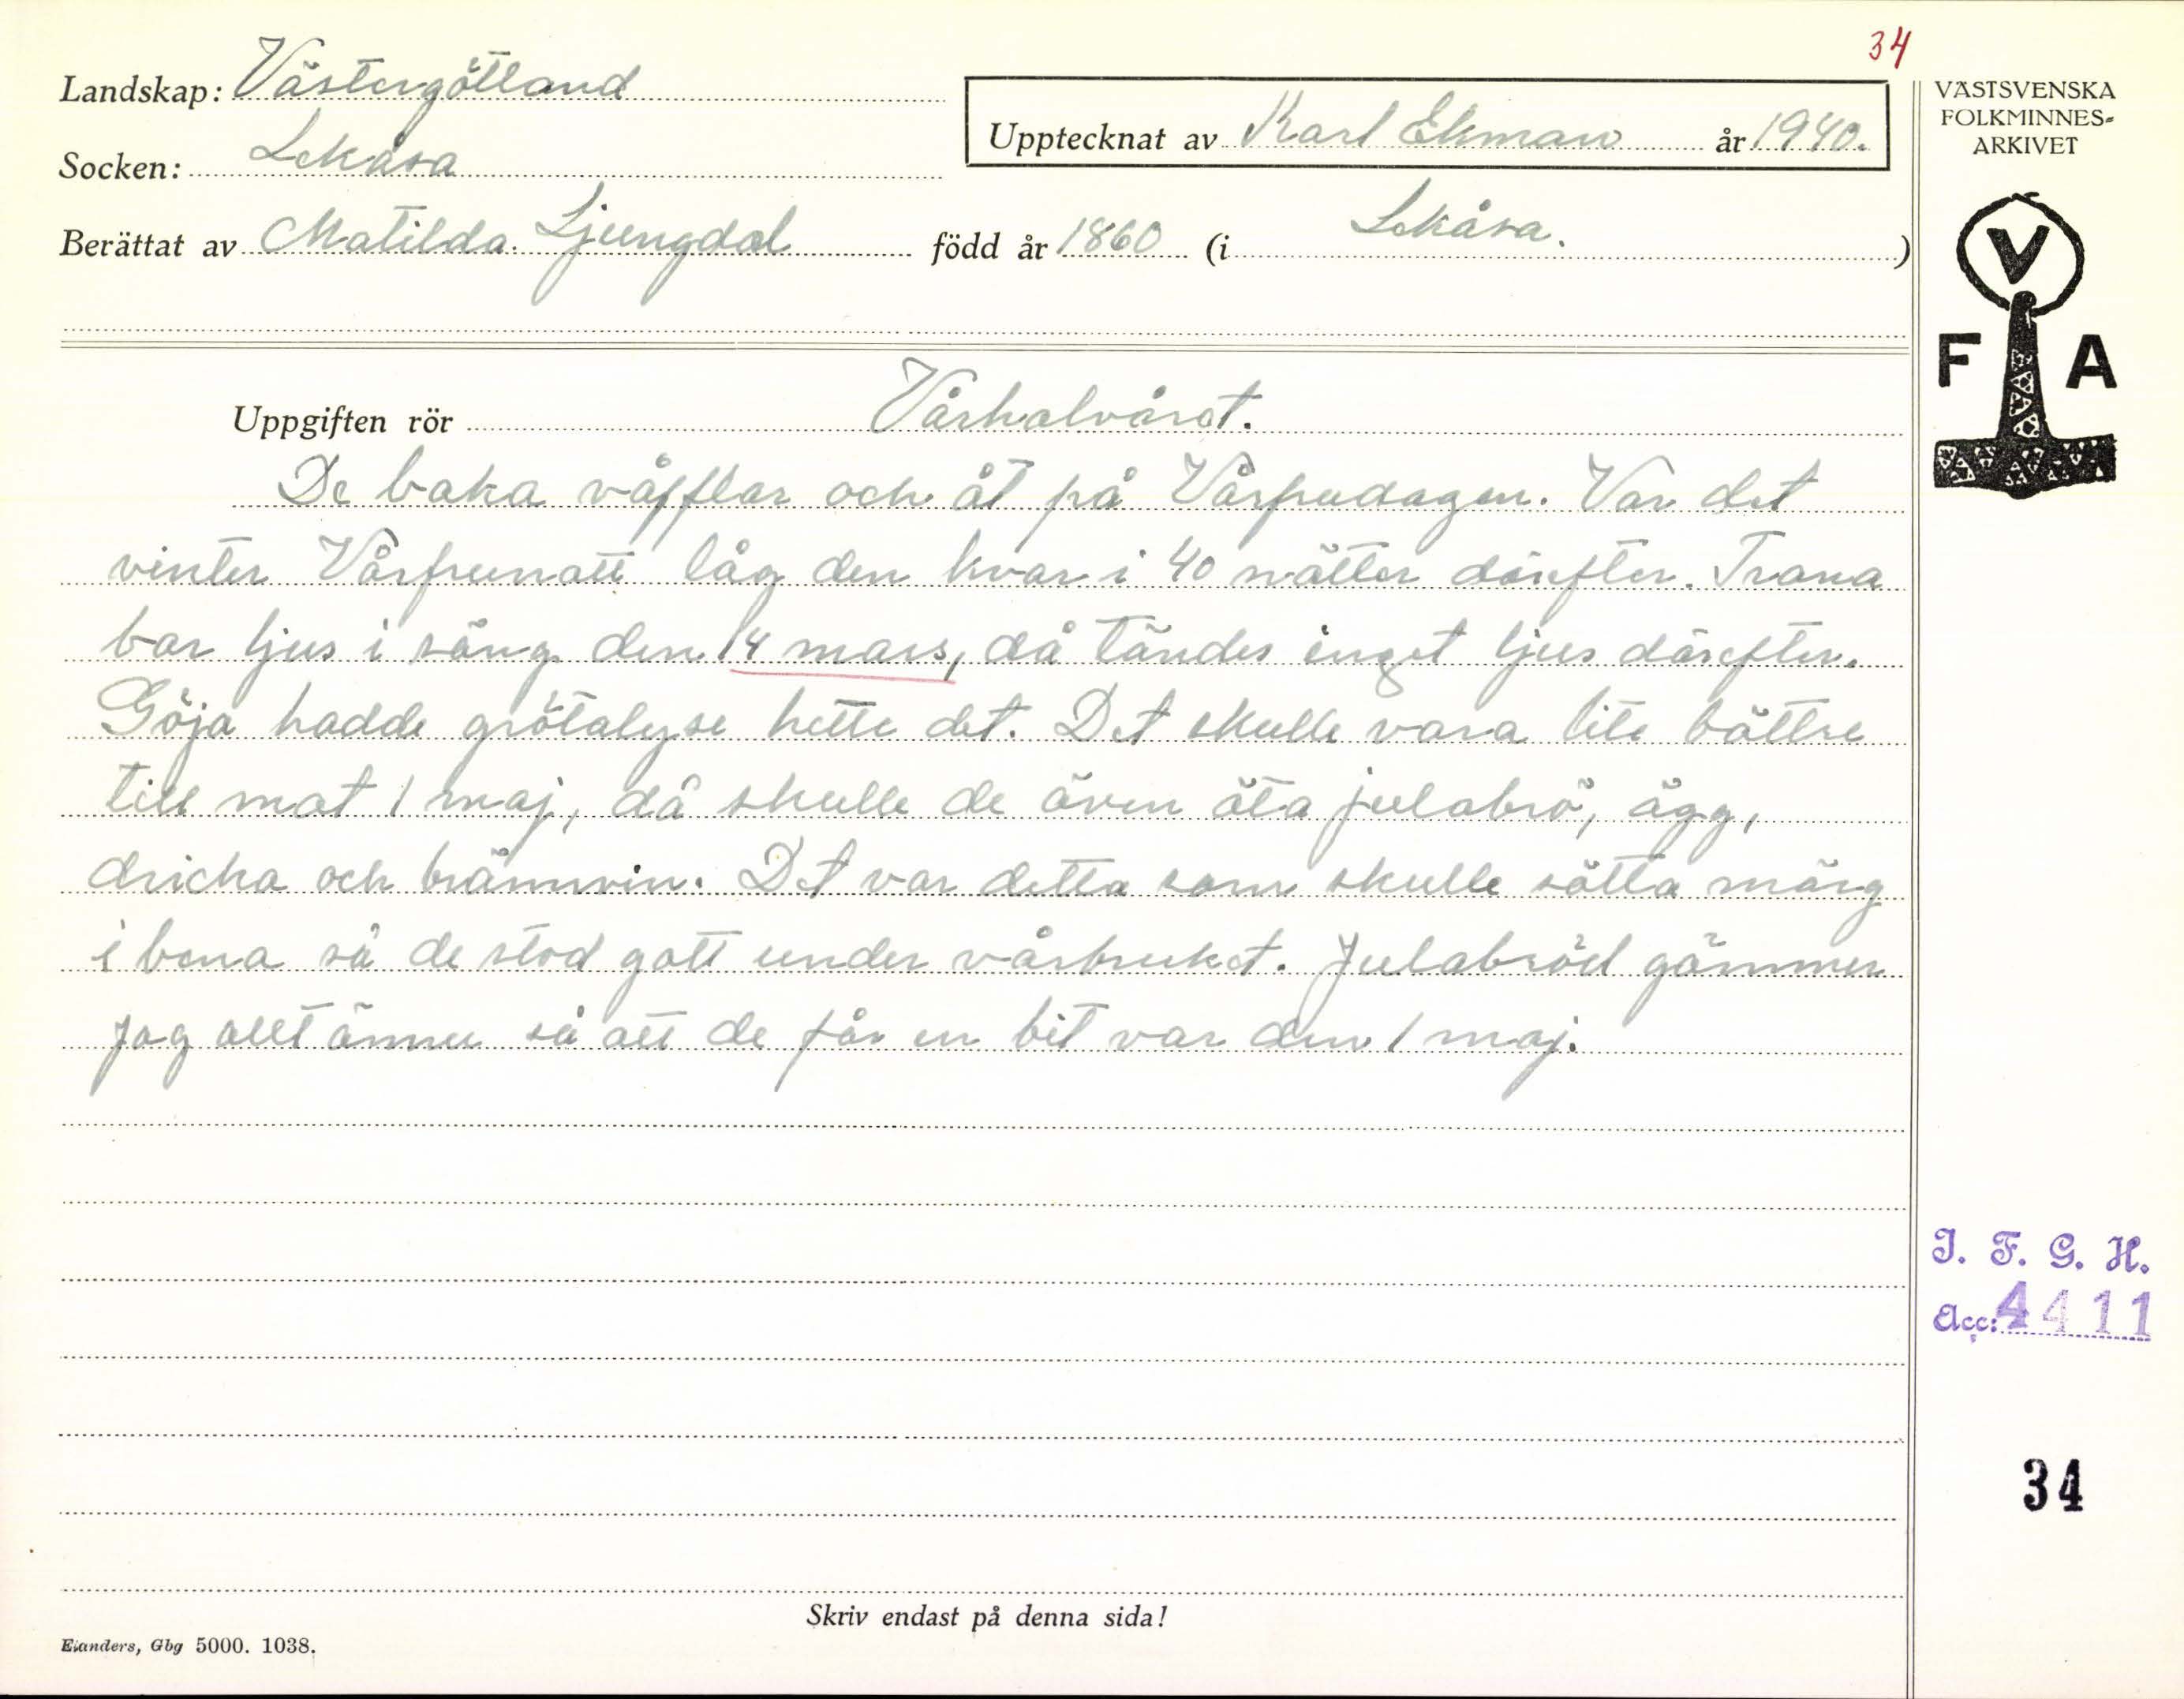 34
Landskap: Västergötland
Socken: Lekåsa
Upptecknat av Karl Ekman år 1940.
Berättat av Matilda Ljungdal född år 1860 (i Lekåsa.)
VÄSTSVENSKA
FOLKMINNES=
ARKIVET
V
F A
Uppgiften rör Vårhalvåret.
De baka våfflar och åt på Vårfrudagen. Var det
vinter Vårfrunatt låg den kvar i 40 nätter därefter. Trana
bar ljus i säng den 14 mars, då tändes inget ljus därefter.
Göja hadde grötalyse hette det. Det skulle vara lite bättre
till mat 1 maj, då skulle de även äta julabrö, ägg,
dricka och brännvin. Det var detta som skulle sätta märg
i bena så de stod gott under vårbruket. Julabröd gömmer
jag allt ännu så att de får en bit var den 1 maj.
I. F. G. H.
Acc: 4411
34
Skriv endast på denna sida!
Elanders, Gbg 5000. 1038.